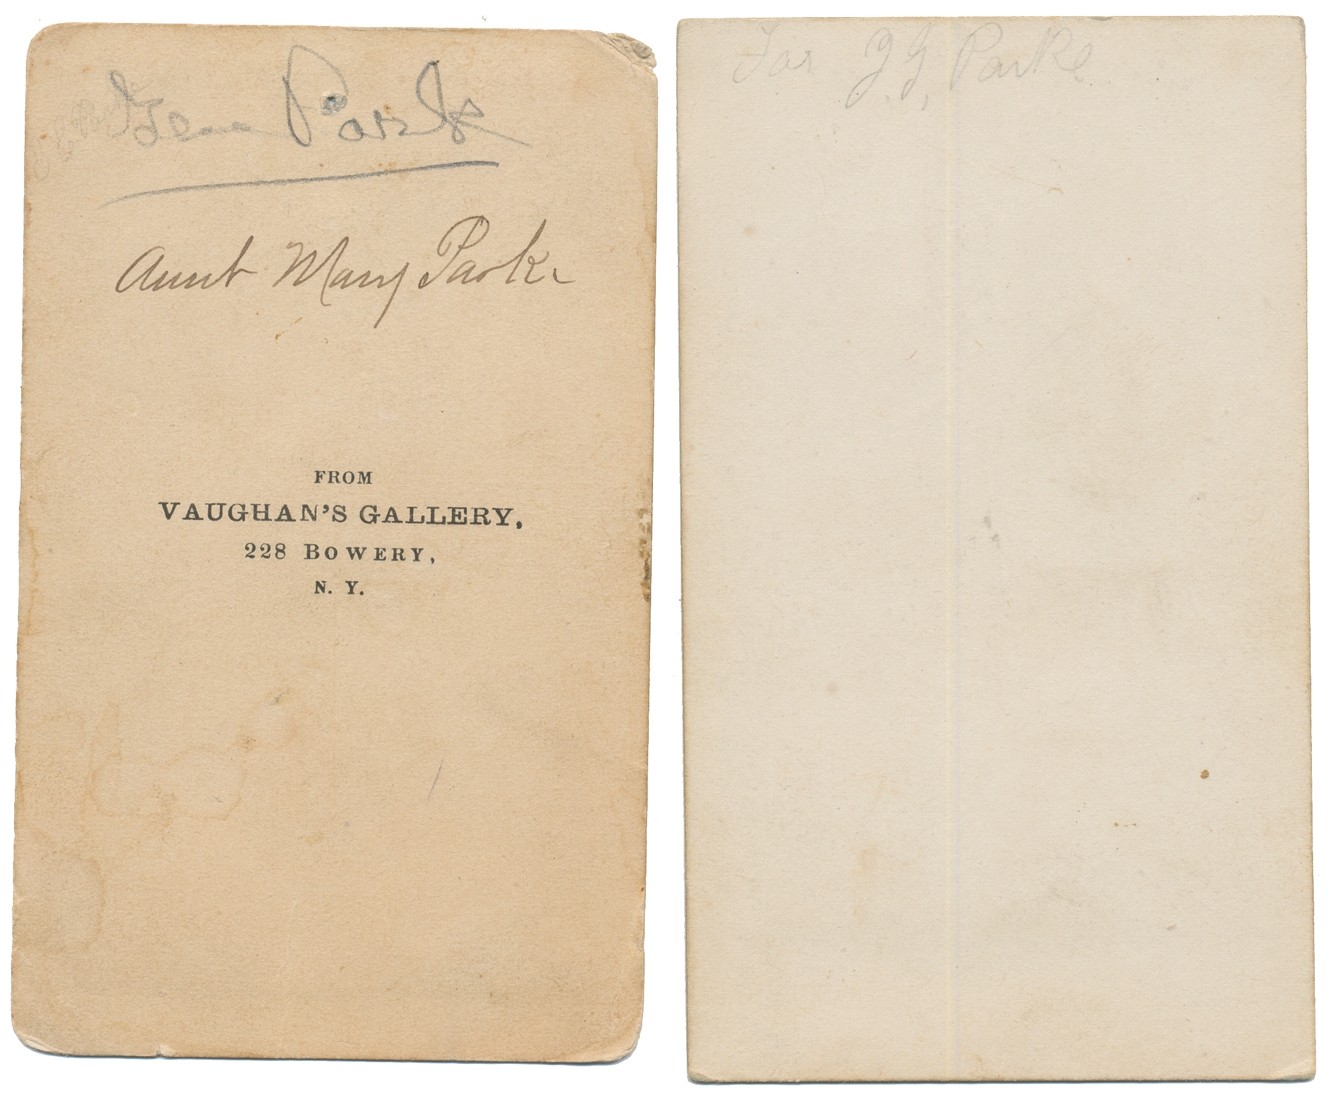 Gen Park
Aunt Mary Parke
FROM
VAUGHAN'S GALLERY,
228 BOWERY,
N. Y.
For J G, Parke